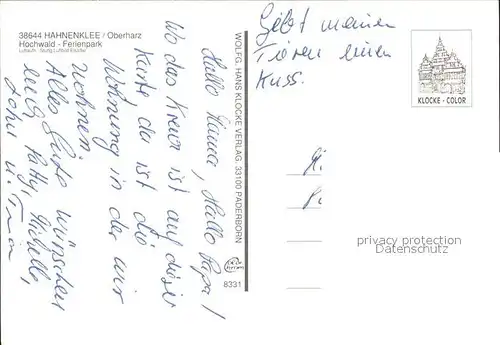 38644 HAHNENKLEE / Oberharz
Hochwald - Ferienpark
Hallo Mama, Hallo Papa!
Wo das Kreuz ist auf dieser
Karte da ist die
Wohnung in der wir
wohnen.
Alles Gute wünschen
euch Patty, Michelle,
John u.
WOLFG. HANS KLOCKE VERLAG, 33100 PADERBORN
8331
Gebt meinen
Tieren einen
Kuss.
KLOCKE - COLOR
privacy protection
Datenschutz